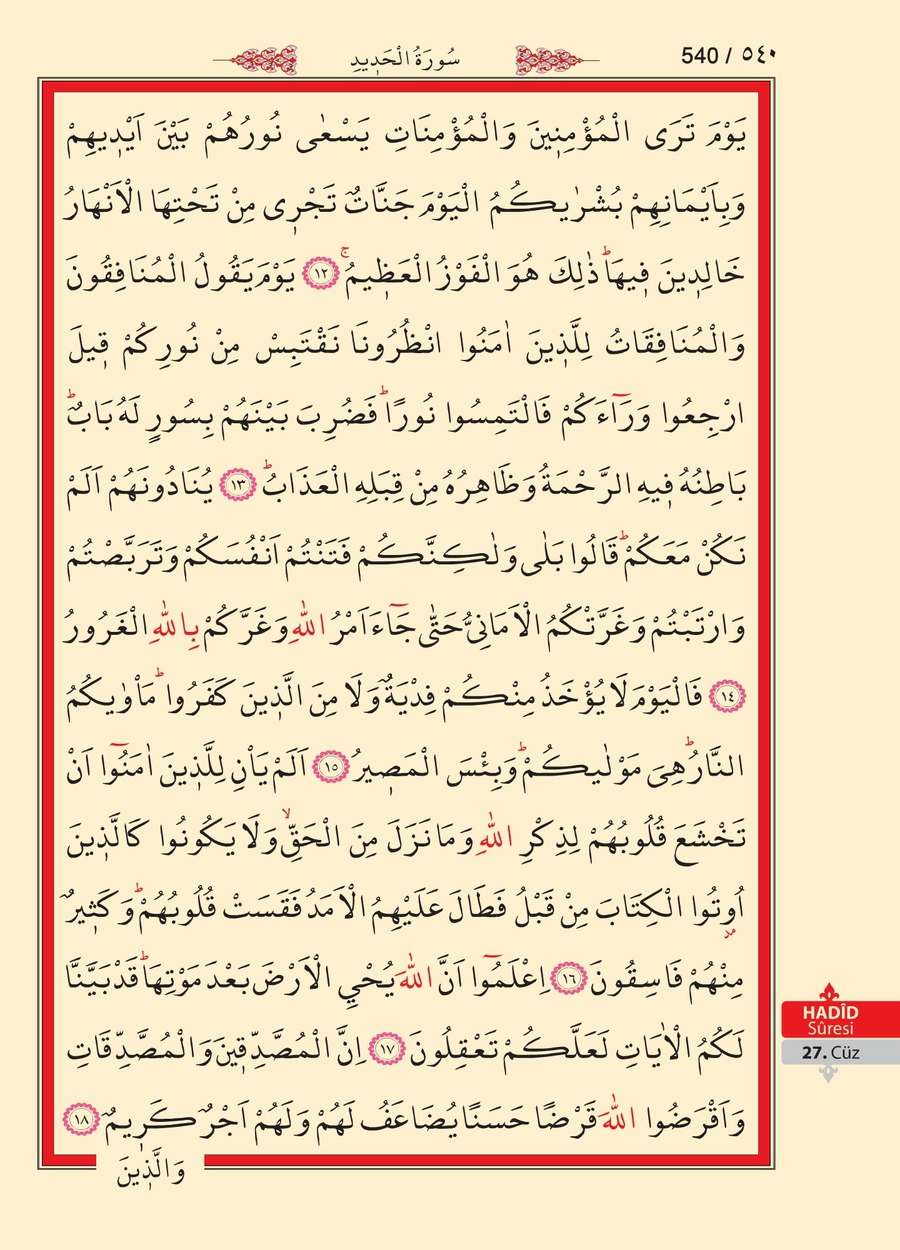 540 / ٥٤٠
سُورَةُ الْحَدٖيدِ
يَوْمَ تَرَى الْمُؤْمِنٖينَ وَالْمُؤْمِنَاتِ يَسْعٰى نُورُهُمْ بَيْنَ اَيْدٖيهِمْ
وَبِاَيْمَانِهِمْ بُشْرٰيكُمُ الْيَوْمَ جَنَّاتٌ تَجْرٖى مِنْ تَحْتِهَا الْاَنْهَارُ
خَالِدٖينَ فٖيهَاؕ ذٰلِكَ هُوَ الْفَوْزُ الْعَظٖيمُۚ ﴿١٢﴾ يَوْمَ يَقُولُ الْمُنَافِقُونَ
وَالْمُنَافِقَاتُ لِلَّذٖينَ اٰمَنُوا انْظُرُونَا نَقْتَبِسْ مِنْ نُورِكُمْ قٖيلَ
ارْجِعُوا وَرَٓاءَكُمْ فَالْتَمِسُوا نُورًاؕ فَضُرِبَ بَيْنَهُمْ بِسُورٍ لَهُ بَابٌؕ
بَاطِنُهُ فٖيهِ الرَّحْمَةُ وَظَاهِرُهُ مِنْ قِبَلِهِ الْعَذَابُؕ ﴿١٣﴾ يُنَادُونَهُمْ اَلَمْ
نَكُنْ مَعَكُمْؕ قَالُوا بَلٰى وَلٰكِنَّكُمْ فَتَنْتُمْ اَنْفُسَكُمْ وَتَرَبَّصْتُمْ
وَارْتَبْتُمْ وَغَرَّتْكُمُ الْاَمَانِىُّ حَتّٰى جَٓاءَ اَمْرُ اللّٰهِ وَغَرَّكُمْ بِاللّٰهِ الْغَرُورُ
﴿١٤﴾ فَالْيَوْمَ لَا يُؤْخَذُ مِنْكُمْ فِدْيَةٌ وَلَا مِنَ الَّذٖينَ كَفَرُواؕ مَأْوٰيكُمُ
النَّارُؕ هِىَ مَوْلٰيكُمْؕ وَبِئْسَ الْمَصٖيرُ ﴿١٥﴾ اَلَمْ يَأْنِ لِلَّذٖينَ اٰمَنُٓوا اَنْ
تَخْشَعَ قُلُوبُهُمْ لِذِكْرِ اللّٰهِ وَمَا نَزَلَ مِنَ الْحَقِّۙ وَلَا يَكُونُوا كَالَّذٖينَ
اُو۫تُوا الْكِتَابَ مِنْ قَبْلُ فَطَالَ عَلَيْهِمُ الْاَمَدُ فَقَسَتْ قُلُوبُهُمْؕ وَكَثٖيرٌ
مِنْهُمْ فَاسِقُونَ ﴿١٦﴾ اِعْلَمُٓوا اَنَّ اللّٰهَ يُحْيِي الْاَرْضَ بَعْدَ مَوْتِهَاؕ قَدْ بَيَّنَّا
لَكُمُ الْاٰيَاتِ لَعَلَّكُمْ تَعْقِلُونَ ﴿١٧﴾ اِنَّ الْمُصَّدِّقٖينَ وَالْمُصَّدِّقَاتِ
وَاَقْرَضُوا اللّٰهَ قَرْضًا حَسَنًا يُضَاعَفُ لَهُمْ وَلَهُمْ اَجْرٌ كَرٖيمٌ ﴿١٨﴾
وَالَّذٖينَ
HADÎD
Sûresi
27. Cüz